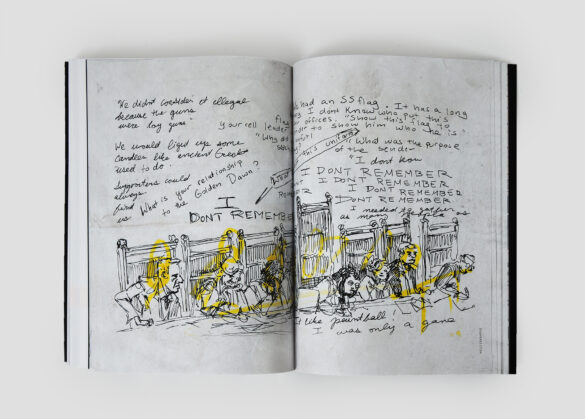 We didn't consider it illegal
because the guns
were toy guns
We would light up some
candles like ancient Greeks
used to do.
Supporters could
always
find
us
What is your relationship
to the Golden Dawn?
your cell leader
flag
"Why did
I
DONT REMEMBER
had an SS flag. It has a long
I dont know who put this
offices. "Show this flag to
to show him who he is."
this uniform
"What was the purpose
of the sender
"I dont know
I DONT REMEMBER
I DONT REMEMBER
I DONT REMEMBER
DONT REMEMBER
I needed to gather
as many
as
like paintball!
I was only a game